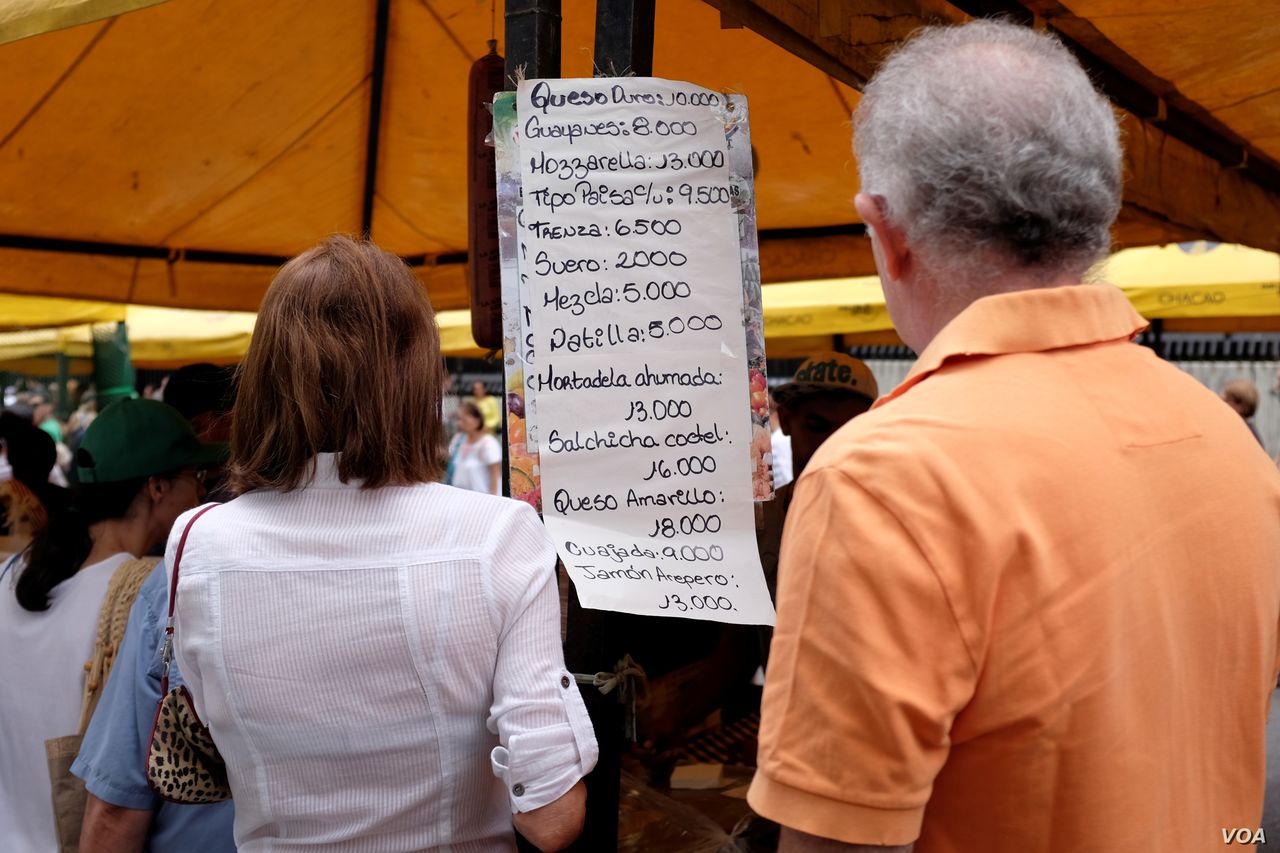 Queso Duro: 10.000
Guayanes: 8.000
Mozzarella: 13.000
Tipo Paisa c/u: 9.500
Trenza: 6.500
Suero: 2000
Mezcla: 5.000
Natilla: 5.000
Mortadela ahumada:
13.000
Salchicha coctel:
16.000
Queso Amarillo:
18.000
Cuajada: 9.000
Jamón Arepero:
13.000.
CHACAO
CHACAO
skate.
VOA